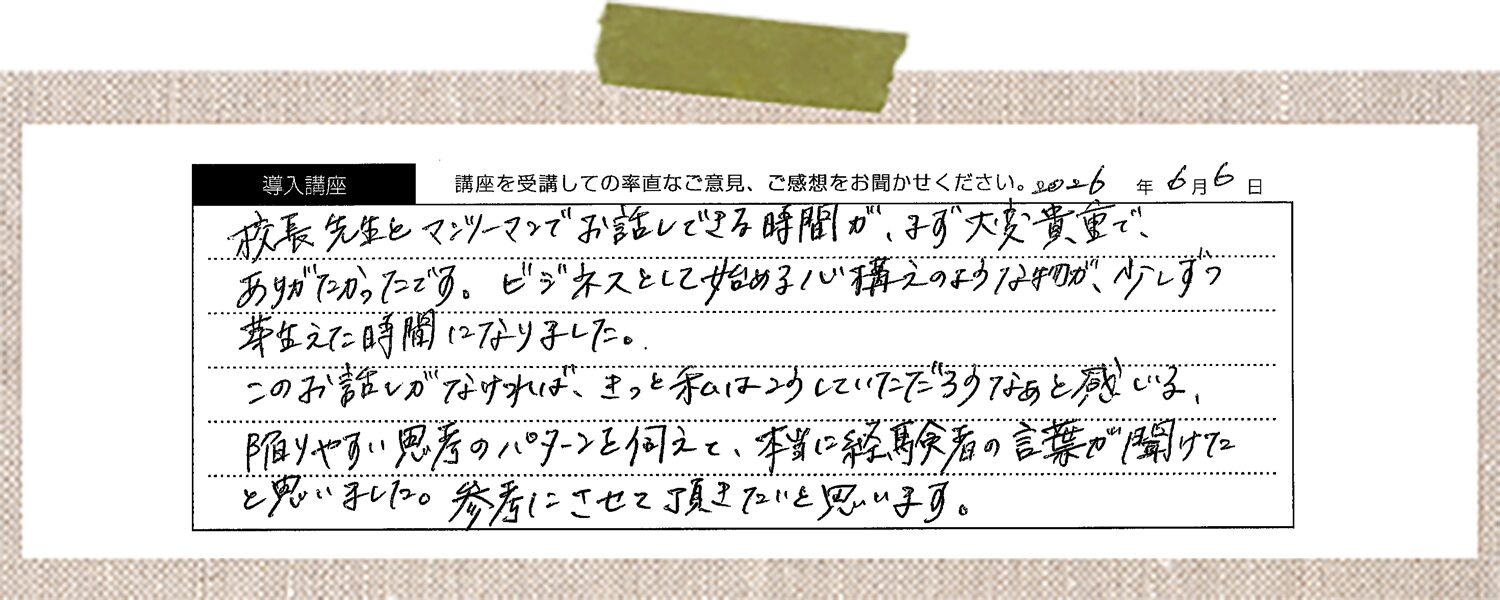 導入講座
講座を受講しての率直なご意見、ご感想をお聞かせください。2026年6月6日
校長先生とマンツーマンでお話しできる時間が、まず大変貴重で、
ありがたかったです。ビジネスとして始める心構えのような物が、少しずつ
芽生えた時間になりました。
このお話しがなければ、きっと私はこうしていただろうなぁと感じる、
陥りやすい思考のパターンを伺えて、本当に経験者の言葉が聞けた
と思いました。参考にさせて頂きたいと思います。